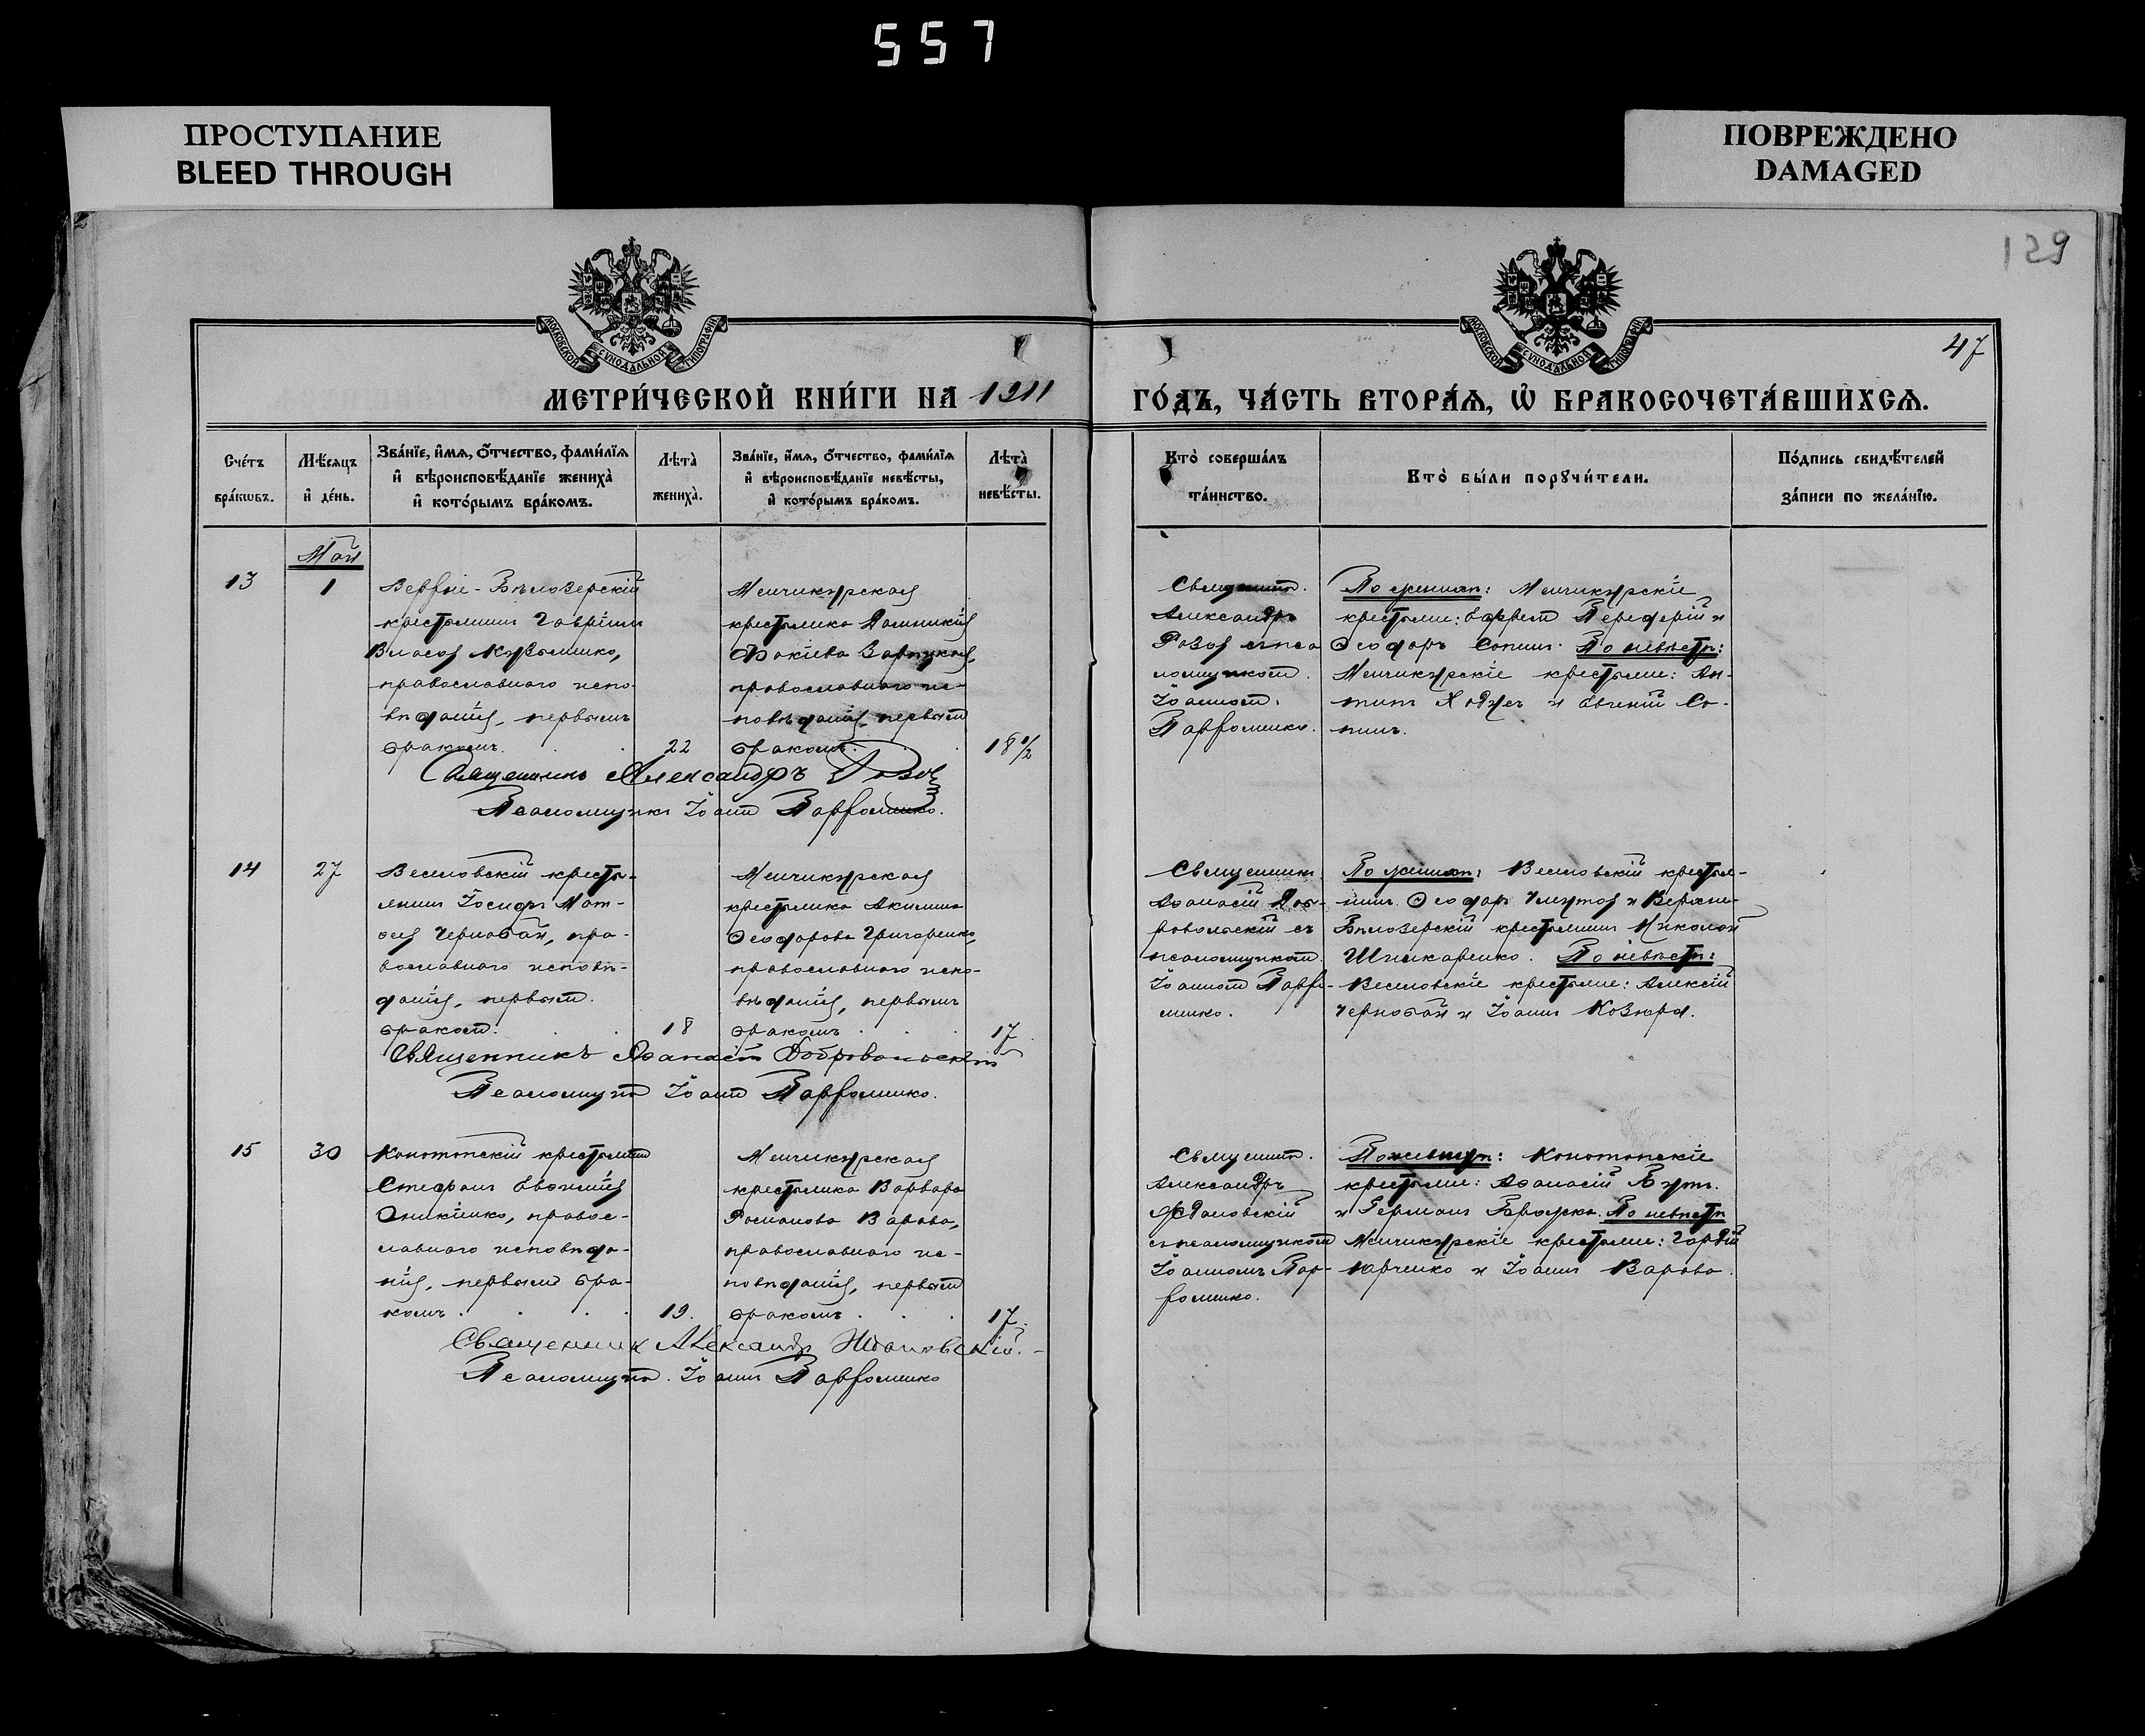 557
ПРОСТУПАНИЕ
BLEED THROUGH
ПОВРЕЖДЕНО
DAMAGED
129
47
МОСКОВСКОЙ СѴНОДАЛЬНОЙ ТИПОГРАФІИ
МОСКОВСКОЙ СѴНОДАЛЬНОЙ ТИПОГРАФІИ
МЕТРИ́ЧЕСКОЙ КНИ́ГИ НА 1911 ГО́ДЪ, ЧА́СТЬ ВТОРА́Ѧ, Ѡ҆ БРАКОСОЧЕТА́ВШИХСѦ.
Сче́тъ бра́кѡвъ.
Мѣ́сяцъ и҆ де́нь.
Зва́нїе, и҆́мя, ѻ҆́тчество, фами́лїя
и҆ вѣроисповѣ́данїе жениха̀
и҆ кото́рымъ бра́комъ.
Лѣта̀ жениха̀.
Зва́нїе, и҆́мя, ѻ҆́тчество, фами́лїя
и҆ вѣроисповѣ́данїе невѣ́сты,
и҆ кото́рымъ бра́комъ.
Лѣта̀ невѣ́сты.
Кто̀ соверша́лъ
та́инство.
Кто̀ бы́ли порꙋчи́тели.
По́дпись свидѣ́телей
за́писи по жела́нїю.
Май
13
1
Верхне-Бѣлозерскій
крестьянинъ Гавріилъ
Власов Кузьменко,
православнаго испо-
вѣданія, первымъ
бракомъ.
22
Менчикурская
крестьянка Домникія
Фокіева
православнаго ис-
повѣданія, первымъ
бракомъ.
18 1/2
Священник
Александръ
Розов съ пса
ломщиком
Іоанном
Парфоменко.
По женихѣ: Менчикурскіе
крестьяне: Ефрем и
Ѳеодоръ Сопин. По невѣстѣ:
Менчикурскіе крестьяне: Ан-
типъ и Евгеній Со-
пинъ.
Священникъ Александръ Розов
Псаломщикъ Іоанн Парфоменко.
14
27
Веселовскій кресть-
янин Іосифъ Мат-
ѳея Чернобай, пра-
вославнаго исповѣ-
данія, первым
браком.
18
Менчикурская
крестьянка Акилина
Ѳеодорова Григоренко,
православнаго испо-
вѣданія, первымъ
бракомъ
17
Священникъ
Аѳанасій Доб-
ровольскій съ
псаломщиком
Іоанном Парфо-
менко.
По женихѣ: Веселовскій кресть-
янин Ѳеодор и Верхне-
Бѣлозерскій крестьянин Николай
Шпикаренко. По невѣстѣ:
Веселовскіе крестьяне: Алексій
Чернобай и Іоанн Козюра.
Священникъ Аѳанасій Добровольскій
Псаломщик Іоанн Парфоменко.
15
30
Конотопскій крестьянин
Стефан Евѳиміев
Оникіенко, правос-
лавнаго исповѣда-
нія, первым бра-
комъ
19.
Менчикурская
крестьянка Варвара
Романова Варава,
православнаго ис-
повѣданія, первым
бракомъ
17.
Священник
Александръ
Ждановскій
съ псаломщиком
Іоанномъ Пар-
фоменко.
По женихѣ: Конотопскіе
крестьяне: Аѳанасій
и Герман. По невѣстѣ
Менчикурскіе крестьяне: Гордій
Юрченко и Іоанн Варава.
Священник Александр Ждановскій.
Псаломщик Іоанн Парфоменко